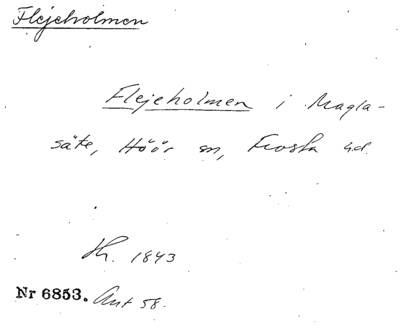 Flejeholmen
Flejeholmen i Magla-
säte, Höör sn, Frosta hd.
Hr. 1843
Nr 6853. Ant 58.